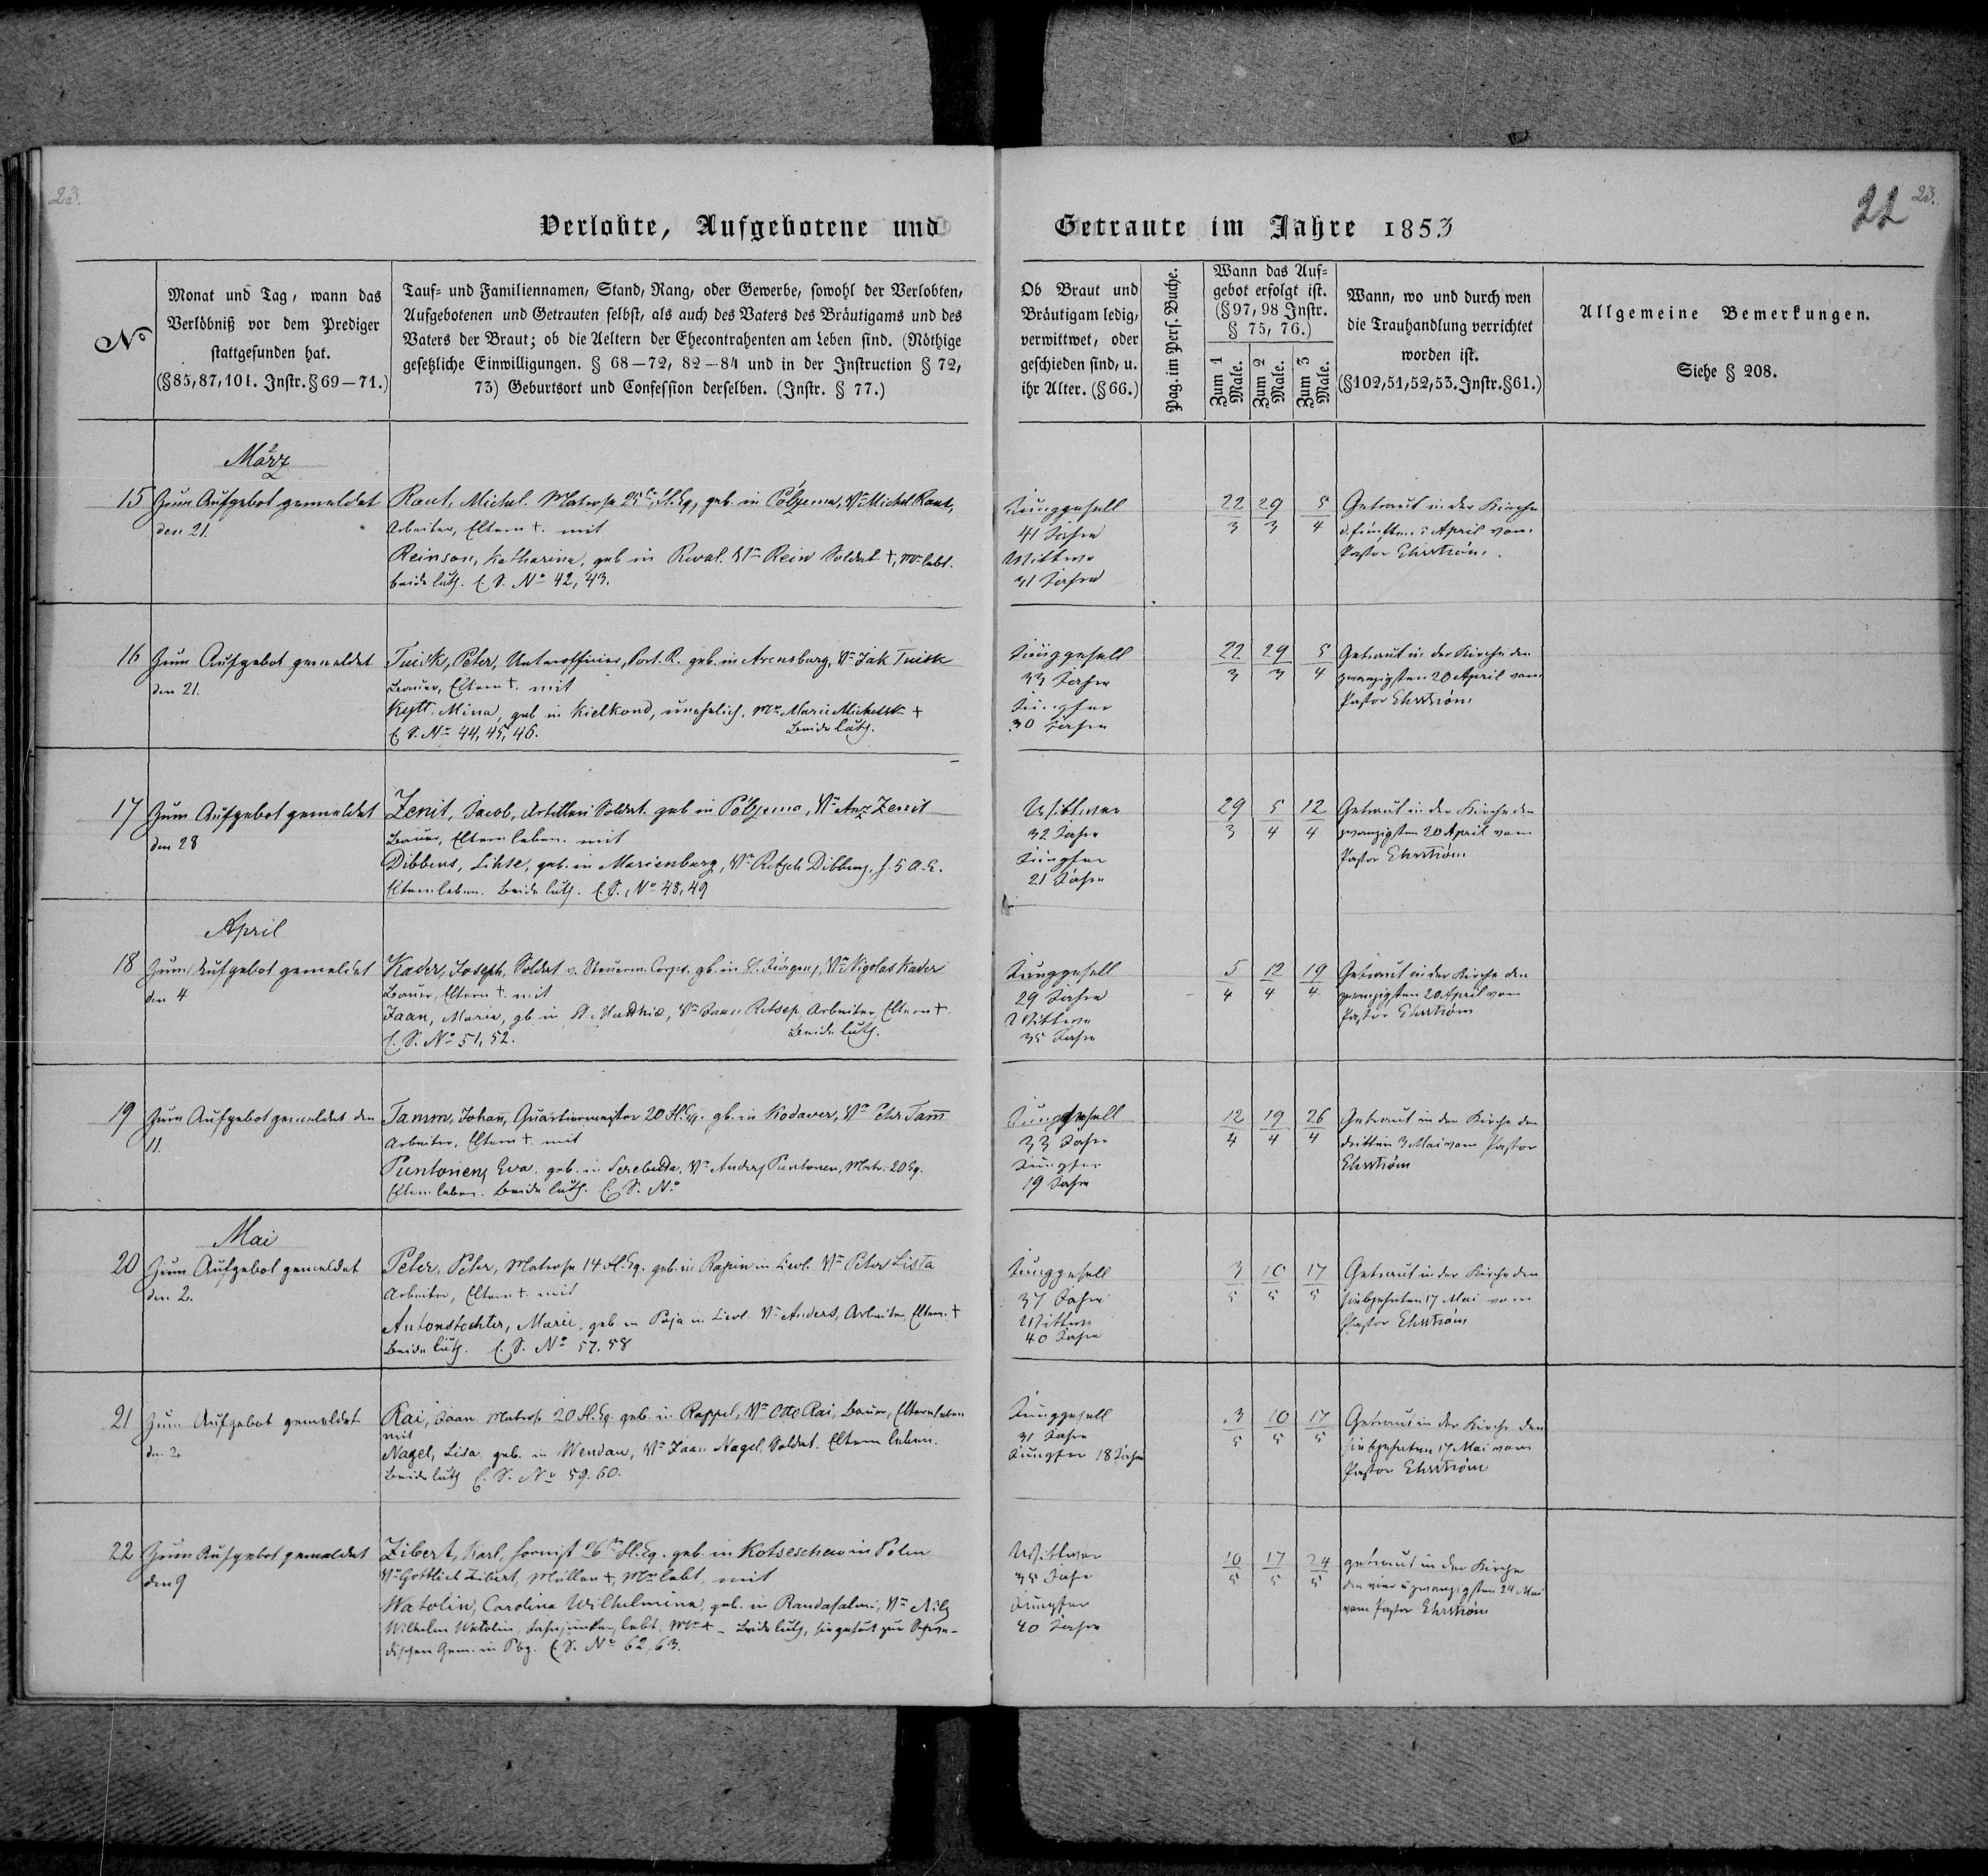 23.
Verlobte, Aufgebotene und
Getraute im Jahre 1853
22 23.
No
Monat und Tag, wann das
Verlöbniß vor dem Prediger
stattgefunden hat.
(§85,87,101. Instr. §69—71.)
Tauf- und Familiennamen, Stand, Rang, oder Gewerbe, sowohl der Verlobten,
Aufgebotenen und Getrauten selbst, als auch des Vaters des Bräutigams und des
Vaters der Braut; ob die Aeltern der Ehecontrahenten am Leben sind. (Nöthige
gesetzliche Einwilligungen. § 68—72, 82—84 und in der Instruction § 72,
73) Geburtsort und Confession derselben. (Instr. § 77.)
Ob Braut und
Bräutigam ledig,
verwittwet, oder
geschieden sind, u.
ihr Alter. (§66.)
Pag. im Pers. Buche.
Wann das Auf-
gebot erfolgt ist.
(§97, 98 Instr.
§ 75, 76.)
Zum 1 Male.
Zum 2 Male.
Zum 3 Male.
Wann, wo und durch wen
die Trauhandlung verrichtet
worden ist.
(§102,51,52,53. Instr. §61.)
Allgemeine Bemerkungen.
Siehe § 208.
März
15 Zum Aufgebot gemeldet
den 21.
Raut, Michel. Matrose 25 Fl. Eq, geb. in Vr Michel Raut,
Arbeiter, Eltern †. mit
Reinson, Katharina, geb in Reval. Vr Rein Soldat †, Mr lebt.
beide luth. C. S. No 42, 43.
Junggesell
41 Jahre
Wittwe
31 Jahre
22/3 29/3 5/4
Getraut in der Kirche
d. fünften 5 April vom
Pastor Ehrström.
16 Zum Aufgebot gemeldet
den 21.
Tuisk, Peter, Unterofficier, geb. in Arensburg, Vr Jak Tuisk
Bauer, Eltern †. mit
Mina, geb in Kielkond, unehelich, Mr Marie †
C. S. No 44, 45, 46. Beide luth.
Junggesell
33 Jahre
Jungfer
30 Jahre
22/3 29/3 5/4
Getraut in der Kirche den
zwanzigsten 20 April vom
Pastor Ehrström
17 Zum Aufgebot gemeldet
den 28
Zenit, Jacob, Artillerie Soldat. geb in Vr Zenit
Bauer, Eltern leben. mit
Dibbens, Lihse, geb. in Marienburg, Vr
Eltern leben. Beide luth. C. S. No 48, 49
Wittwer
32 Jahre
Jungfer
21 Jahre
29/3 5/4 12/4
Getraut in der Kirche den
zwanzigsten 20 April vom
Pastor Ehrström
April
18 Zum Aufgebot gemeldet
den 4
Kader, Joseph, Soldat v. Steuerm. Corps. gb. in St. Jürgens, Vr Nigolas Kader
Bauer, Eltern †. mit
Jaan, Marie, gb in St. Vr Jaan Retsep, Arbeiter, Eltern †.
C. S. No 51, 52. Beide luth.
Junggesell
29 Jahre
Wittwe
35 Jahre
5/4 12/4 19/4
Getraut in der Kirche den
zwanzigsten 20 April vom
Pastor Ehrström
19 Zum Aufgebot gemeldet den
11.
Tamm, Johan, Quartiermeister 20 Fl. Eq. gb. in Kodaver, Vr Petr Tam
Arbeiter, Eltern †. mit
Puntonen, Eva, geb. in Vr Anders Puntonen, Matr. 20 Eq.
Eltern leben. Beide luth. C. S. No
Junggesell
33 Jahre
Jungfer
19 Jahre
12/4 19/4 26/4
Getraut in der Kirche den
dritten 3 Mai vom Pastor
Ehrström
Mai
20 Zum Aufgebot gemeldet
den 2.
Peter, Peter, Matrose 14 Fl. Eq. geb. in Rapin in Livl. Vr Peter Lista
Arbeiter, Eltern †. mit
Antonstochter, Marie, geb. in in Livl. Vr Anders, Arbeiter, Eltern. †
Beide luth. C. S. No 57. 58
Junggesell
37 Jahre
Wittwe
40 Jahre
3/5 10/5 17/5
Getraut in der Kirche den
siebzehnten 17 Mai vom
Pastor Ehrström
21 Zum Aufgebot gemeldet
den 2
Rai, Jaan Matrose 20 Fl. Eq. geb. in Rappel, Vr Otto Rai, Bauer, Eltern leben
mit
Nagel, Lisa, geb. in Wendau, Vr Jaan Nagel, Soldat. Eltern leben.
Beide luth C. S. No 59. 60.
Junggesell
31 Jahre
Jungfer 18 Jahre
3/5 10/5 17/5
Getraut in der Kirche den
siebzehnten 17 Mai vom
Pastor Ehrström
22 Zum Aufgebot gemeldet
den 9
Zibert, Karl, Hornist 26 Fl. Eq. geb. in Kotseschew in Polen
Vr Gottlieb Zibert, Müller †, Mr lebt, mit
Watolin, Carolina Wilhelmina, geb. in Randasalmi, Vr Nils
Wilhelm Watolin, lebt, Mr † – Beide luth, sie gehört zur Schwe-
dischen Gem. in Pbg. C. S. No 62, 63.
Wittwer
35 Jahre
Jungfer
40 Jahre
10/5 17/5 24/5
getraut in der Kirche
den vier u zwanzigsten 24 Mai
vom Pastor Ehrström